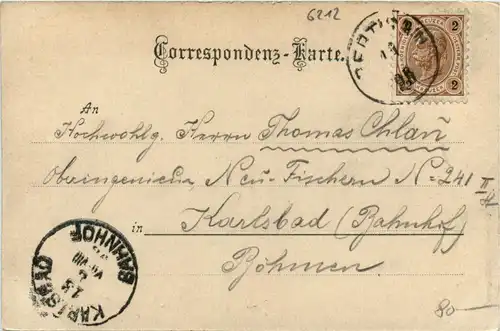 6212
Correspondenz-Karte.
2 2
An
Hochwohlg. Herrn Thomas Chlaň
Oberingenieur Neu-Fischern N= 241 II
in Karlsbad (Bahnhof)
Böhmen.
KARLSBAD BAHNHOF
80-